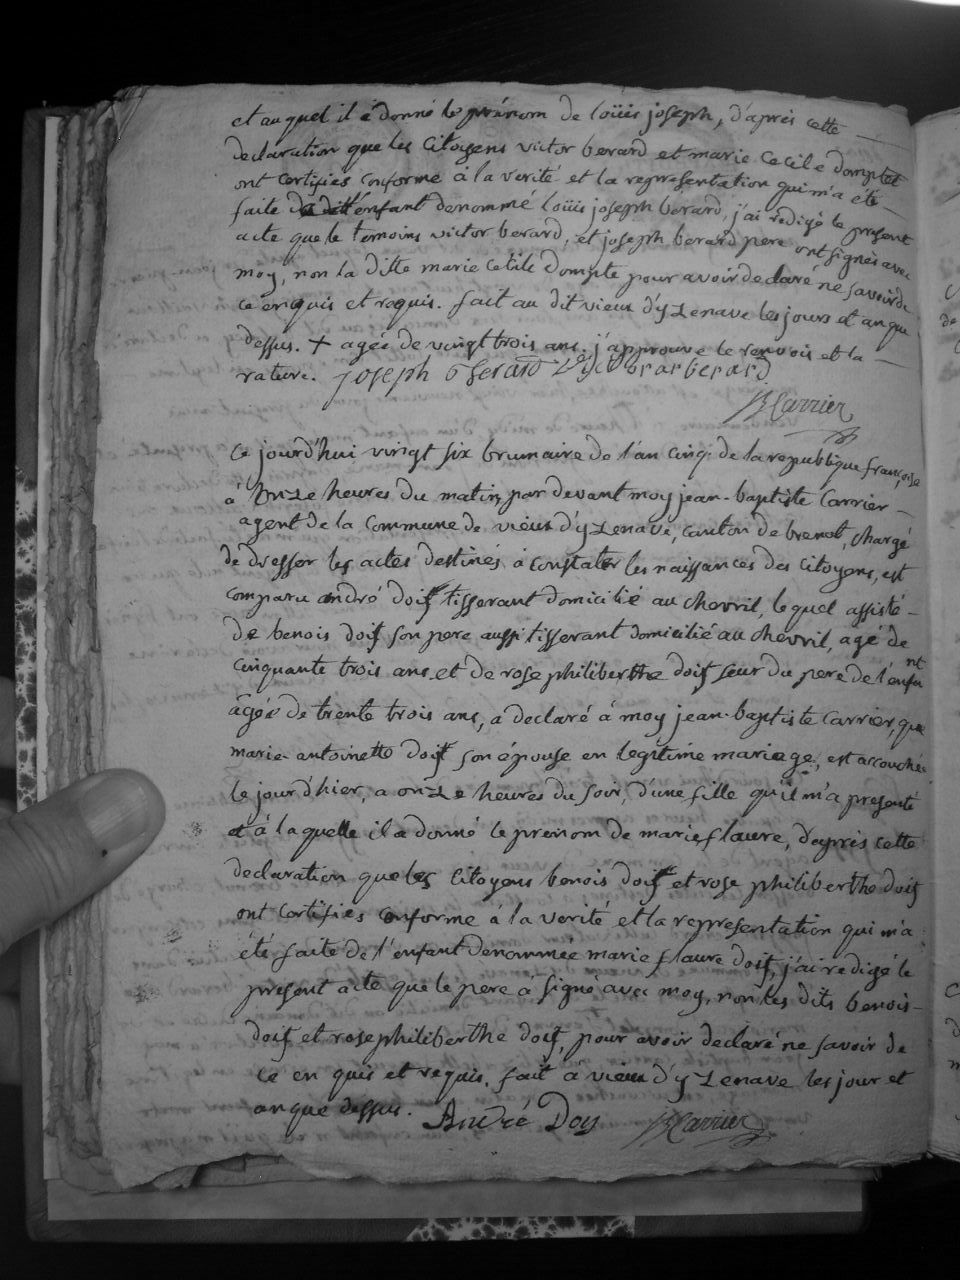 et auquel il a donné le prénom de loüis joseph, d'après cette
declaration que les Citoyens victor berard et marie Cecile domptet
ont certifies conforme à la verité et la representation qui m'a été
faite enfant denommé loüis joseph berard, j'ai redigé le present
acte que le temoins victor berard, et joseph berard pere ont signés avec
moy, non la ditte marie Cecile dompte pour avoir declaré ne savoir de
ce enquis et requis. fait au dit vieux d'yzenave les jours et an que
dessus. + agée de vingt trois ans. j'approuve le renvois et la
rature. joseph berard Victor berard
JB Carrier
Ce jourd'hui vingt six brumaire de l'an cinq. de la republique françoise
à onze heures du matin, par devant moy jean-baptiste Carrier
agent de la Commune de vieux d'yzenave, canton de brenot, chargé
de dresser les actes destinés à constater les naissances des Citoyens, est
comparu andré doist tisserant domicilié au chevril, lequel assisté
de benois doist son pere aussi tisserant domicilié au chevril, agé de
cinquante trois ans, et de rose philiberthe doist seur du pere de l'enfant
âgée de trente trois ans, a declaré à moy jean-baptiste Carrier, que
marie antoinette doist son épouse en legitime mariage, est accouchée
le jour d'hier, a onze heures du soir, d'une fille qu'il m'a presenté
et à laquelle il a donné le prenom de marie flavre, d'après cette
declaration que les Citoyens benois doist et rose philiberthe doist
ont certifies conforme à la verité et la representation qui m'a
été faite de l'enfant denommée marie flavre doist, j'ai redigé le
present acte que le pere a signé avec moy, non les dits benois
doist et rose philiberthe doist, pour avoir declaré ne savoir de
ce en quis et requis. fait à vieux d'yzenave les jour et
an que dessus. André Doy JB Carrier